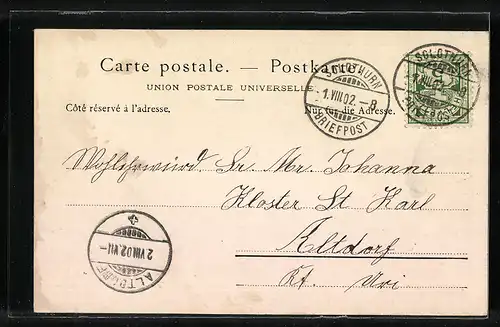 Carte postale. — Postkarte.
UNION POSTALE UNIVERSELLE
Côté réservé à l'adresse.
Nur für die Adresse.
SOLOTHURN
1.VIII.02.-8
BRIEFPOST
SOLOTHURN
1.VIII.02.-8
BRIEFPOST
Wohlehrwürd. Sr. Mr. Johanna
Kloster St. Karl
Altdorf
Kt. Uri
2.VIII.02.VII-
ALTDORF